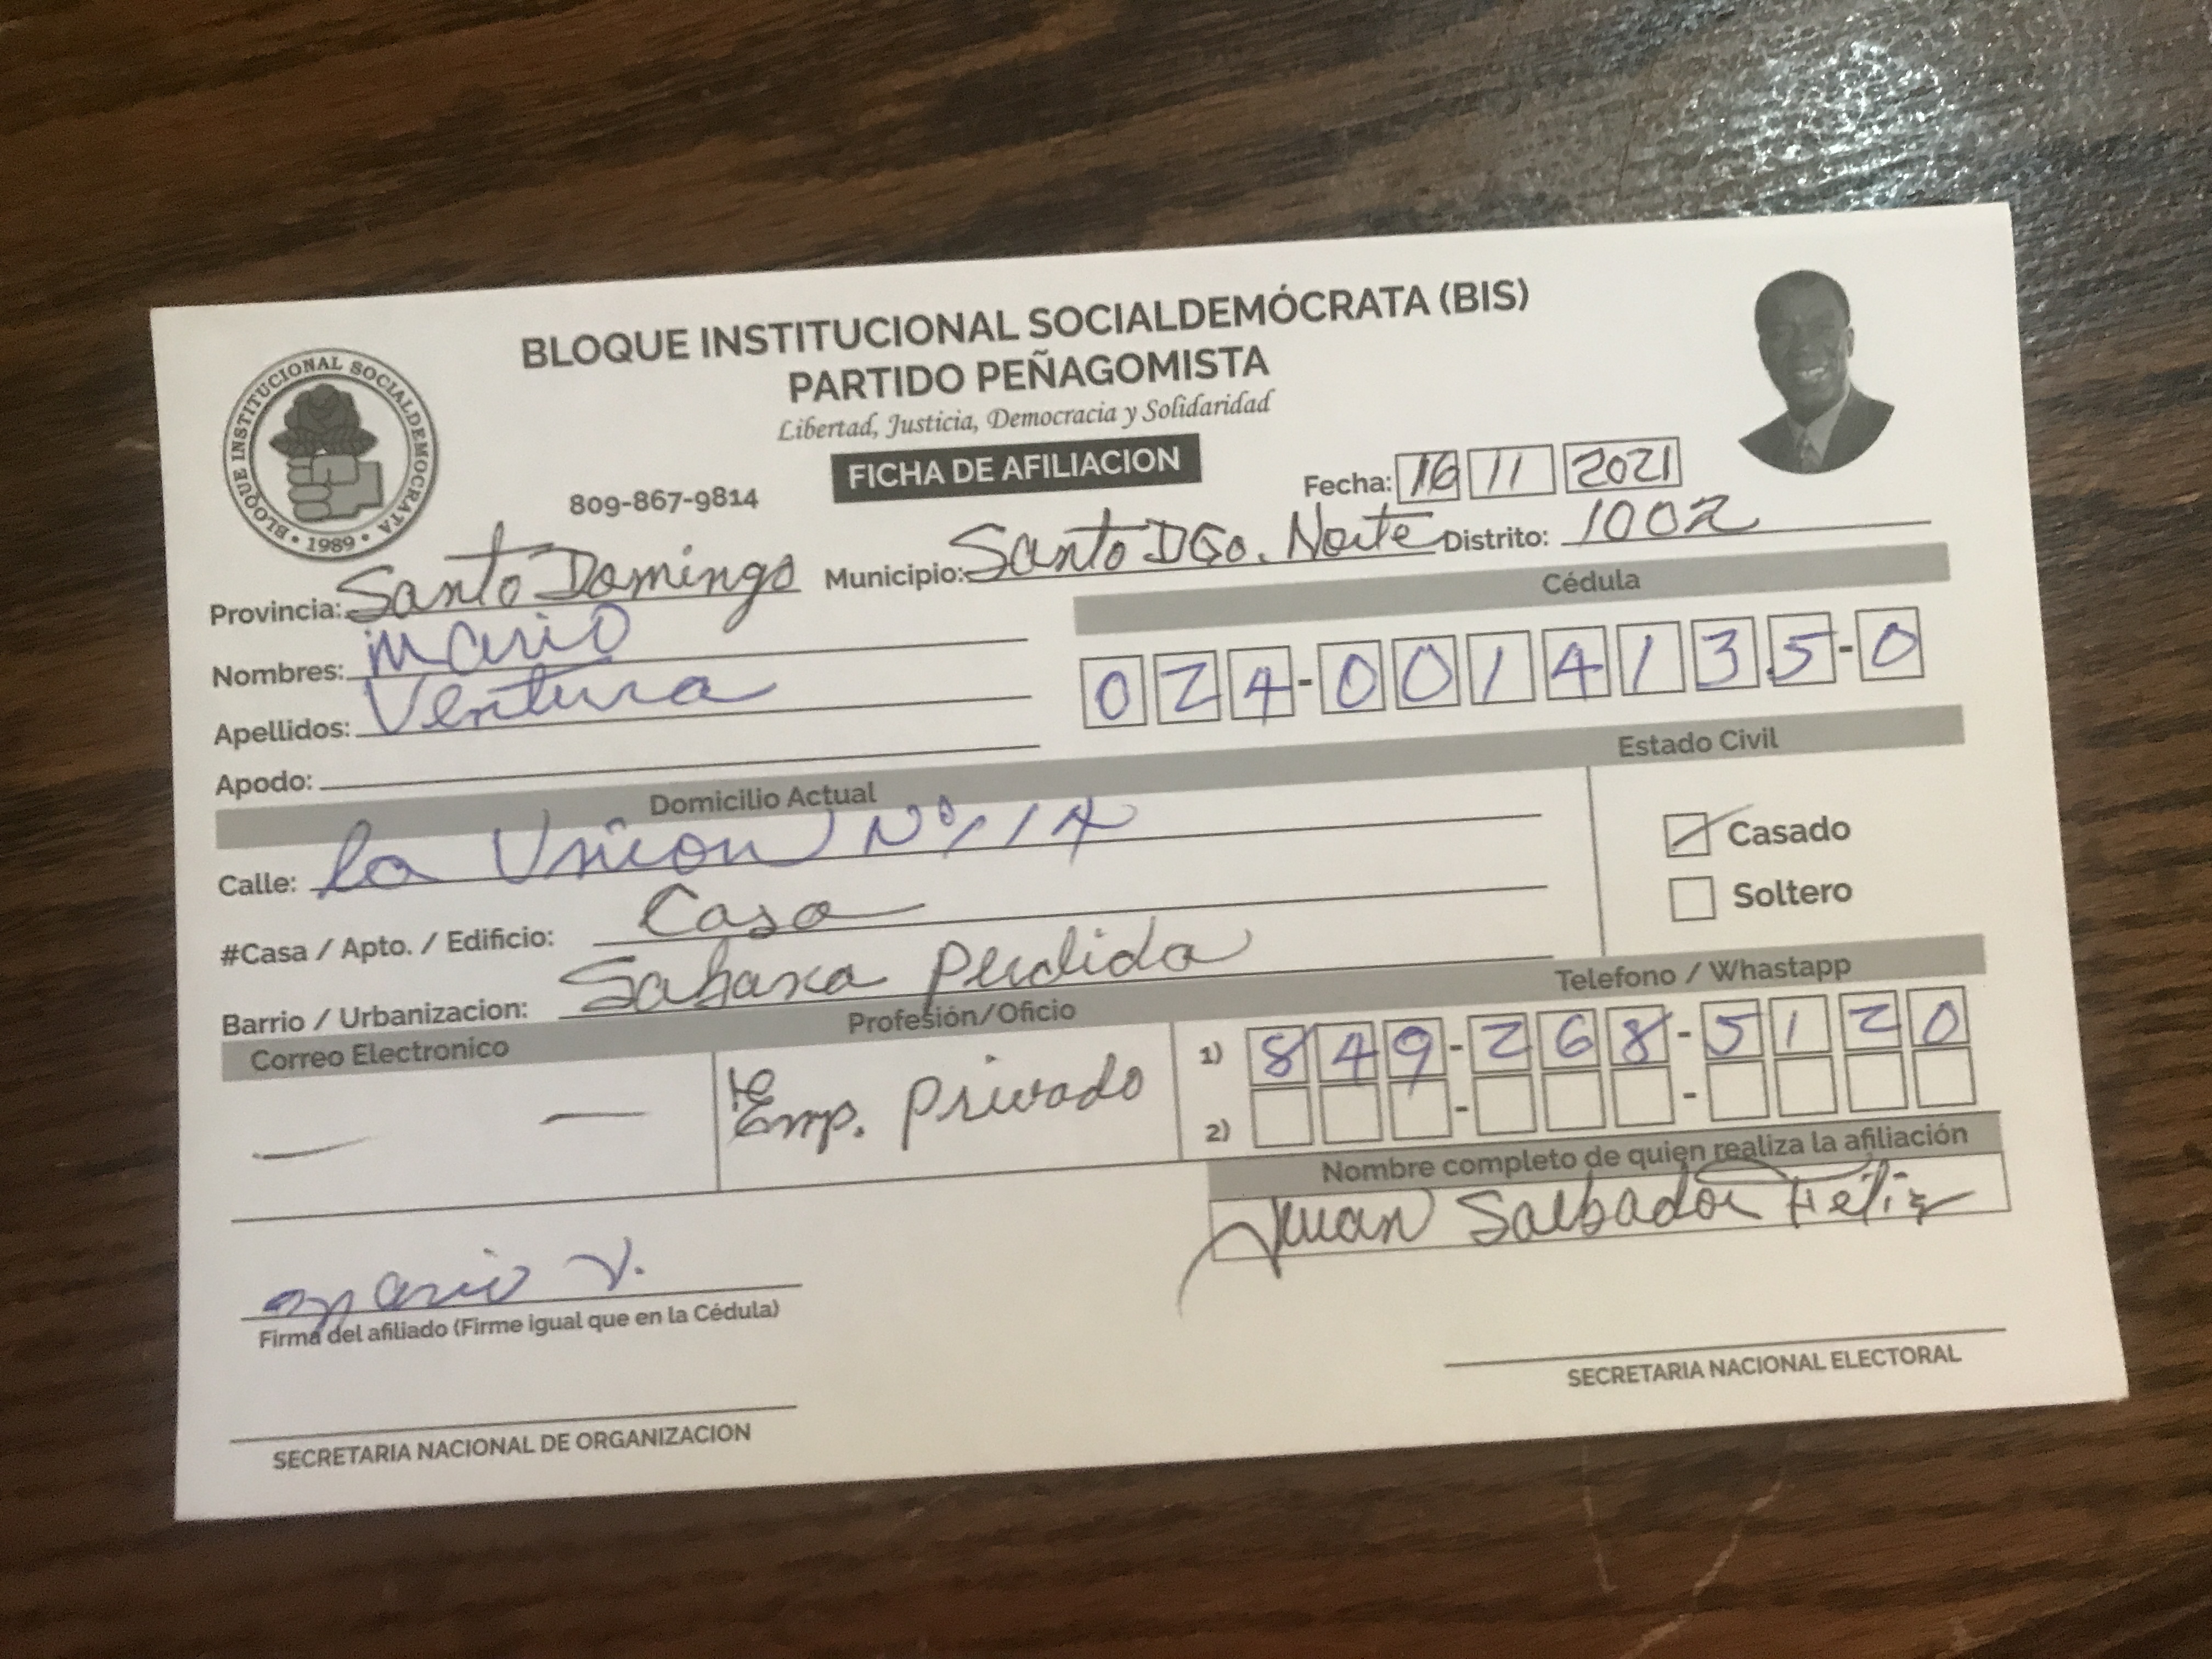 BLOQUE INSTITUCIONAL SOCIALDEMÓCRATA (BIS)
PARTIDO PEÑAGOMISTA
Libertad, Justicia, Democracia y Solidaridad
BLOQUE INSTITUCIONAL SOCIALDEMOCRATA • 1989 •
809-867-9814
FICHA DE AFILIACION
Fecha: 16 11 2021
Provincia: Santo Domingo Municipio: Santo DGo. Norte Distrito: 1002
Nombres: Mario
Apellidos: Ventura
Apodo:
Cédula
024-0014135-0
Domicilio Actual
Estado Civil
Calle: La Union Nº 14
Casado
#Casa / Apto. / Edificio: Casa
Soltero
Barrio / Urbanizacion: Sabana Perdida
Correo Electronico
Profesión/Oficio
Telefono / Whastapp
— —
Emp. Privado
1) 849-268-5120
2) - -
Nombre completo de quien realiza la afiliación
Juan Salbador Féliz
Mario V.
Firma del afiliado (Firme igual que en la Cédula)
SECRETARIA NACIONAL ELECTORAL
SECRETARIA NACIONAL DE ORGANIZACION